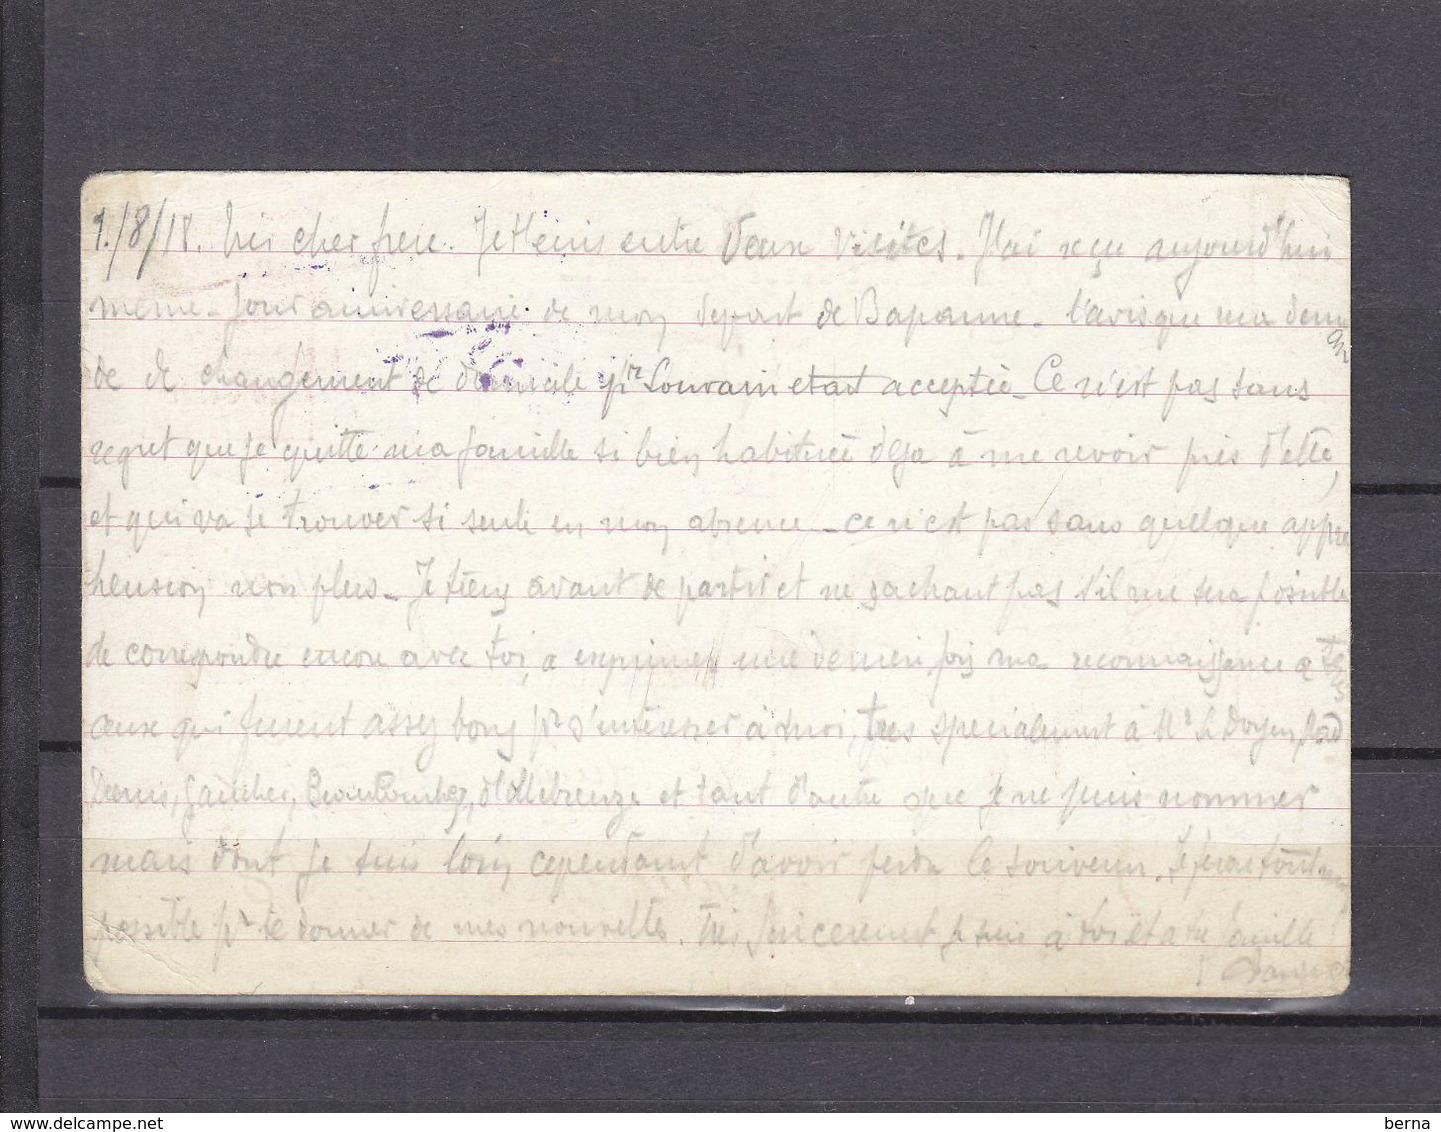 1./8/18. Très cher frère. Je t'écris entre deux visites. J'ai reçu aujourd'hui
même - jour anniversaire de mon départ de Bapaume - l'avis que ma deman
de de changement de domicile pr Louvain etait acceptée - Ce n'est pas sans
regret que je quitte ma famille si bien habituée déja à me revoir près d'elle,
et qui va se trouver si seule en mon absence - ce n'est pas sans quelque appré
hension non plus - Je tiens avant de partir et ne sachant pas s'il me sera possible
de correspondre encore avec toi, a exprimer une dernière fois ma reconnaissance a tous
ceux qui furent assez bons pr s'intéresser à moi, très specialement à Mr le Doyen,
Denis, Gaucher, et tant d'autre que je ne puis nommer
mais dont je suis loin cependant d'avoir perdu le souvenir. Je ferai tout mon
possible pr te donner de mes nouvelles. Très sincerement je suis à toi et a ta famille
delcampe.net
berna